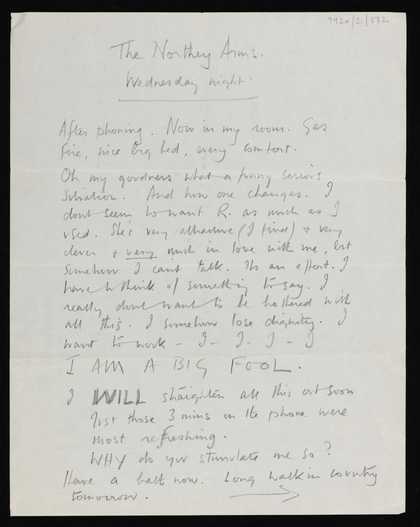 9920/2/572
The Northey Arms.
Wednesday night.
After phoning. Now in my room. Gas
Fire, nice big bed, every comfort.
Oh my goodness what a funny serious
situation. And how one changes. I
dont seem to want R. as much as I
used. She's very attractive (I find) + very
clever + very much in love with me, but
somehow I cant talk. Its an effort. I
have to think of something to say. I
really dont want to be bothered with
all this. I somehow lose dignity. I
want to work - I - I - I - I
I AM A BIG FOOL.
I WILL straighten all this out soon
Just those 3 mins on the phone were
most refreshing.
WHY do you stimulate me so?
Have a bath now. Long walk in country
tomorrow.